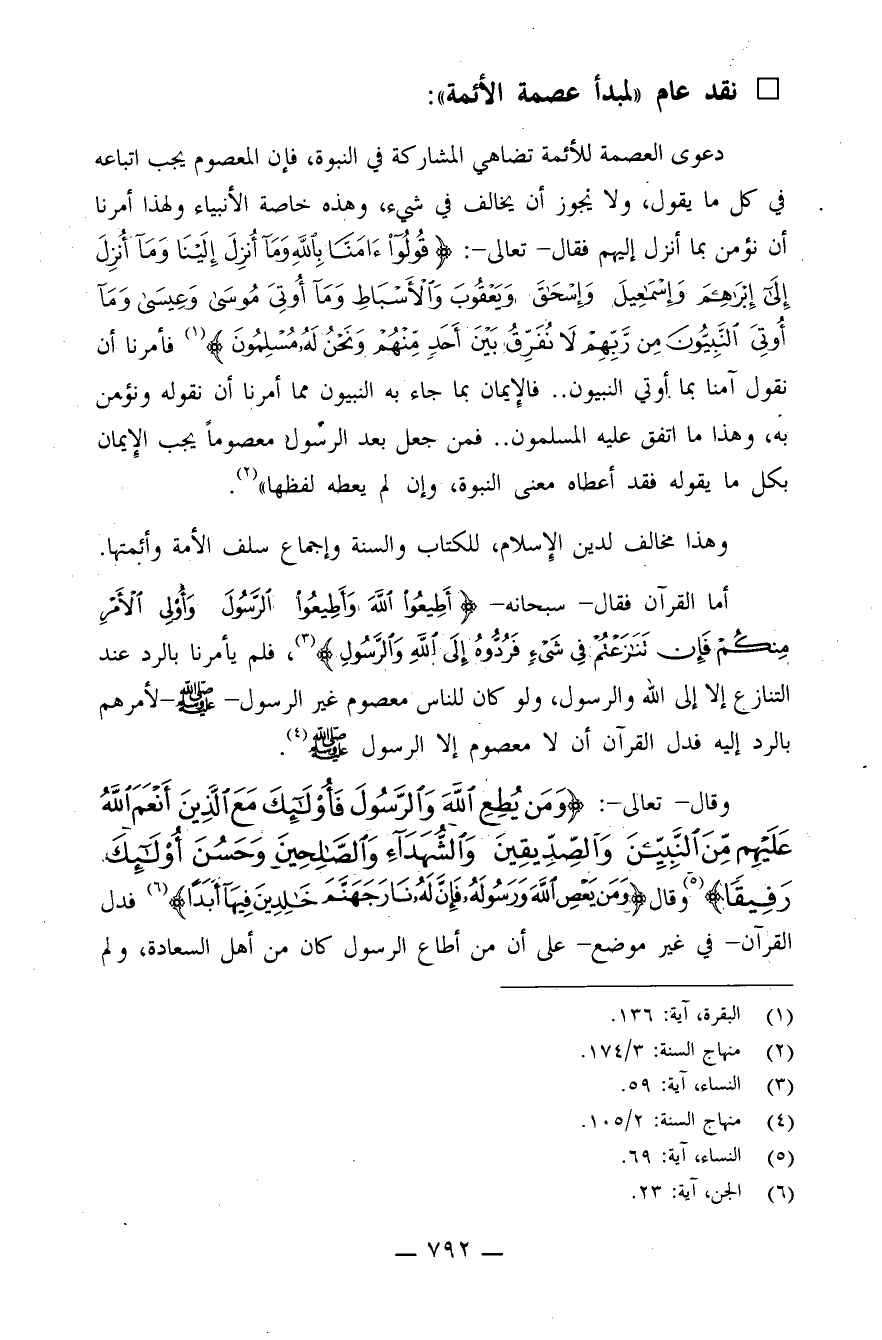 □ نقد عام «لمبدأ عصمة الأئمة»:
دعوى العصمة للأئمة تضاهي المشاركة في النبوة، فإن المعصوم يجب اتباعه
في كل ما يقول، ولا نجوز أن يخالف في شيء، وهذه خاصة الأنبياء ولهذا أمرنا
أن نؤمن بما أنزل إليهم فقال– تعالى–: ﴿ قُولُوٓا۟ ءَامَنَّا بِٱللَّهِ وَمَآ أُنزِلَ إِلَيْنَا وَمَآ أُنزِلَ
إِلَىٰٓ إِبْرَٰهِـۧمَ وَإِسْمَـٰعِيلَ وَإِسْحَـٰقَ وَيَعْقُوبَ وَٱلْأَسْبَاطِ وَمَآ أُوتِىَ مُوسَىٰ وَعِيسَىٰ وَمَآ
أُوتِىَ ٱلنَّبِيُّونَ مِن رَّبِّهِمْ لَا نُفَرِّقُ بَيْنَ أَحَدٍ مِّنْهُمْ وَنَحْنُ لَهُۥ مُسْلِمُونَ ﴾(١) فأمرنا أن
نقول آمنا بما أوتي النبيون.. فالإيمان بما جاء به النبيون مما أمرنا أن نقوله ونؤمن
به، وهذا ما اتفق عليه المسلمون.. فمن جعل بعد الرسول معصوماً يجب الإيمان
بكل ما يقوله فقد أعطاه معنى النبوة، وإن لم يعطه لفظها»(٢).
وهذا مخالف لدين الإسلام، للكتاب والسنة وإجماع سلف الأمة وأئمتها.
أما القرآن فقال– سبحانه– ﴿ أَطِيعُوا۟ ٱللَّهَ وَأَطِيعُوا۟ ٱلرَّسُولَ وَأُو۟لِى ٱلْأَمْرِ
مِنكُمْ فَإِن تَنَـٰزَعْتُمْ فِى شَىْءٍ فَرُدُّوهُ إِلَى ٱللَّهِ وَٱلرَّسُولِ ﴾(٣)، فلم يأمرنا بالرد عند
التنازع إلا إلى الله والرسول، ولو كان للناس معصوم غير الرسول– ﷺ –لأمرهم
بالرد إليه فدل القرآن أن لا معصوم إلا الرسول ﷺ(٤).
وقال– تعالى–: ﴿وَمَن يُطِعِ ٱللَّهَ وَٱلرَّسُولَ فَأُو۟لَـٰٓئِكَ مَعَ ٱلَّذِينَ أَنْعَمَ ٱللَّهُ
عَلَيْهِم مِّنَ ٱلنَّبِيِّـۧنَ وَٱلصِّدِّيقِينَ وَٱلشُّهَدَآءِ وَٱلصَّـٰلِحِينَ وَحَسُنَ أُو۟لَـٰٓئِكَ
رَفِيقًا﴾(٥) وقال ﴿وَمَن يَعْصِ ٱللَّهَ وَرَسُولَهُۥ فَإِنَّ لَهُۥ نَارَ جَهَنَّمَ خَـٰلِدِينَ فِيهَآ أَبَدًا﴾(٦) فدل
القرآن– في غير موضع– على أن من أطاع الرسول كان من أهل السعادة، ولم
(١) البقرة، آية: ١٣٦.
(٢) منهاج السنة: ١٧٤/٣.
(٣) النساء، آية: ٥٩.
(٤) منهاج السنة: ١٠٥/٢.
(٥) النساء، آية: ٦٩.
(٦) الجن، آية: ٢٣.
— ٧٩٢ —